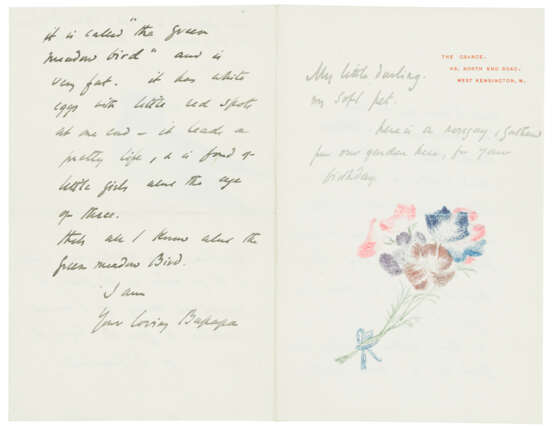 it is called "the green
meadow bird" and is
very fat. it has white
eggs with little red spots
at one end - it leads a
pretty life, & is fond of
little girls about the age
of three.
thats all I know about the
Green meadow Bird.
I am
Your loving Bapapa
THE GRANGE,
49, NORTH END ROAD,
WEST KENSINGTON, W.
My little darling.
my soft pet.
here is a nosegay, gathered
from our garden here, for your
birthday